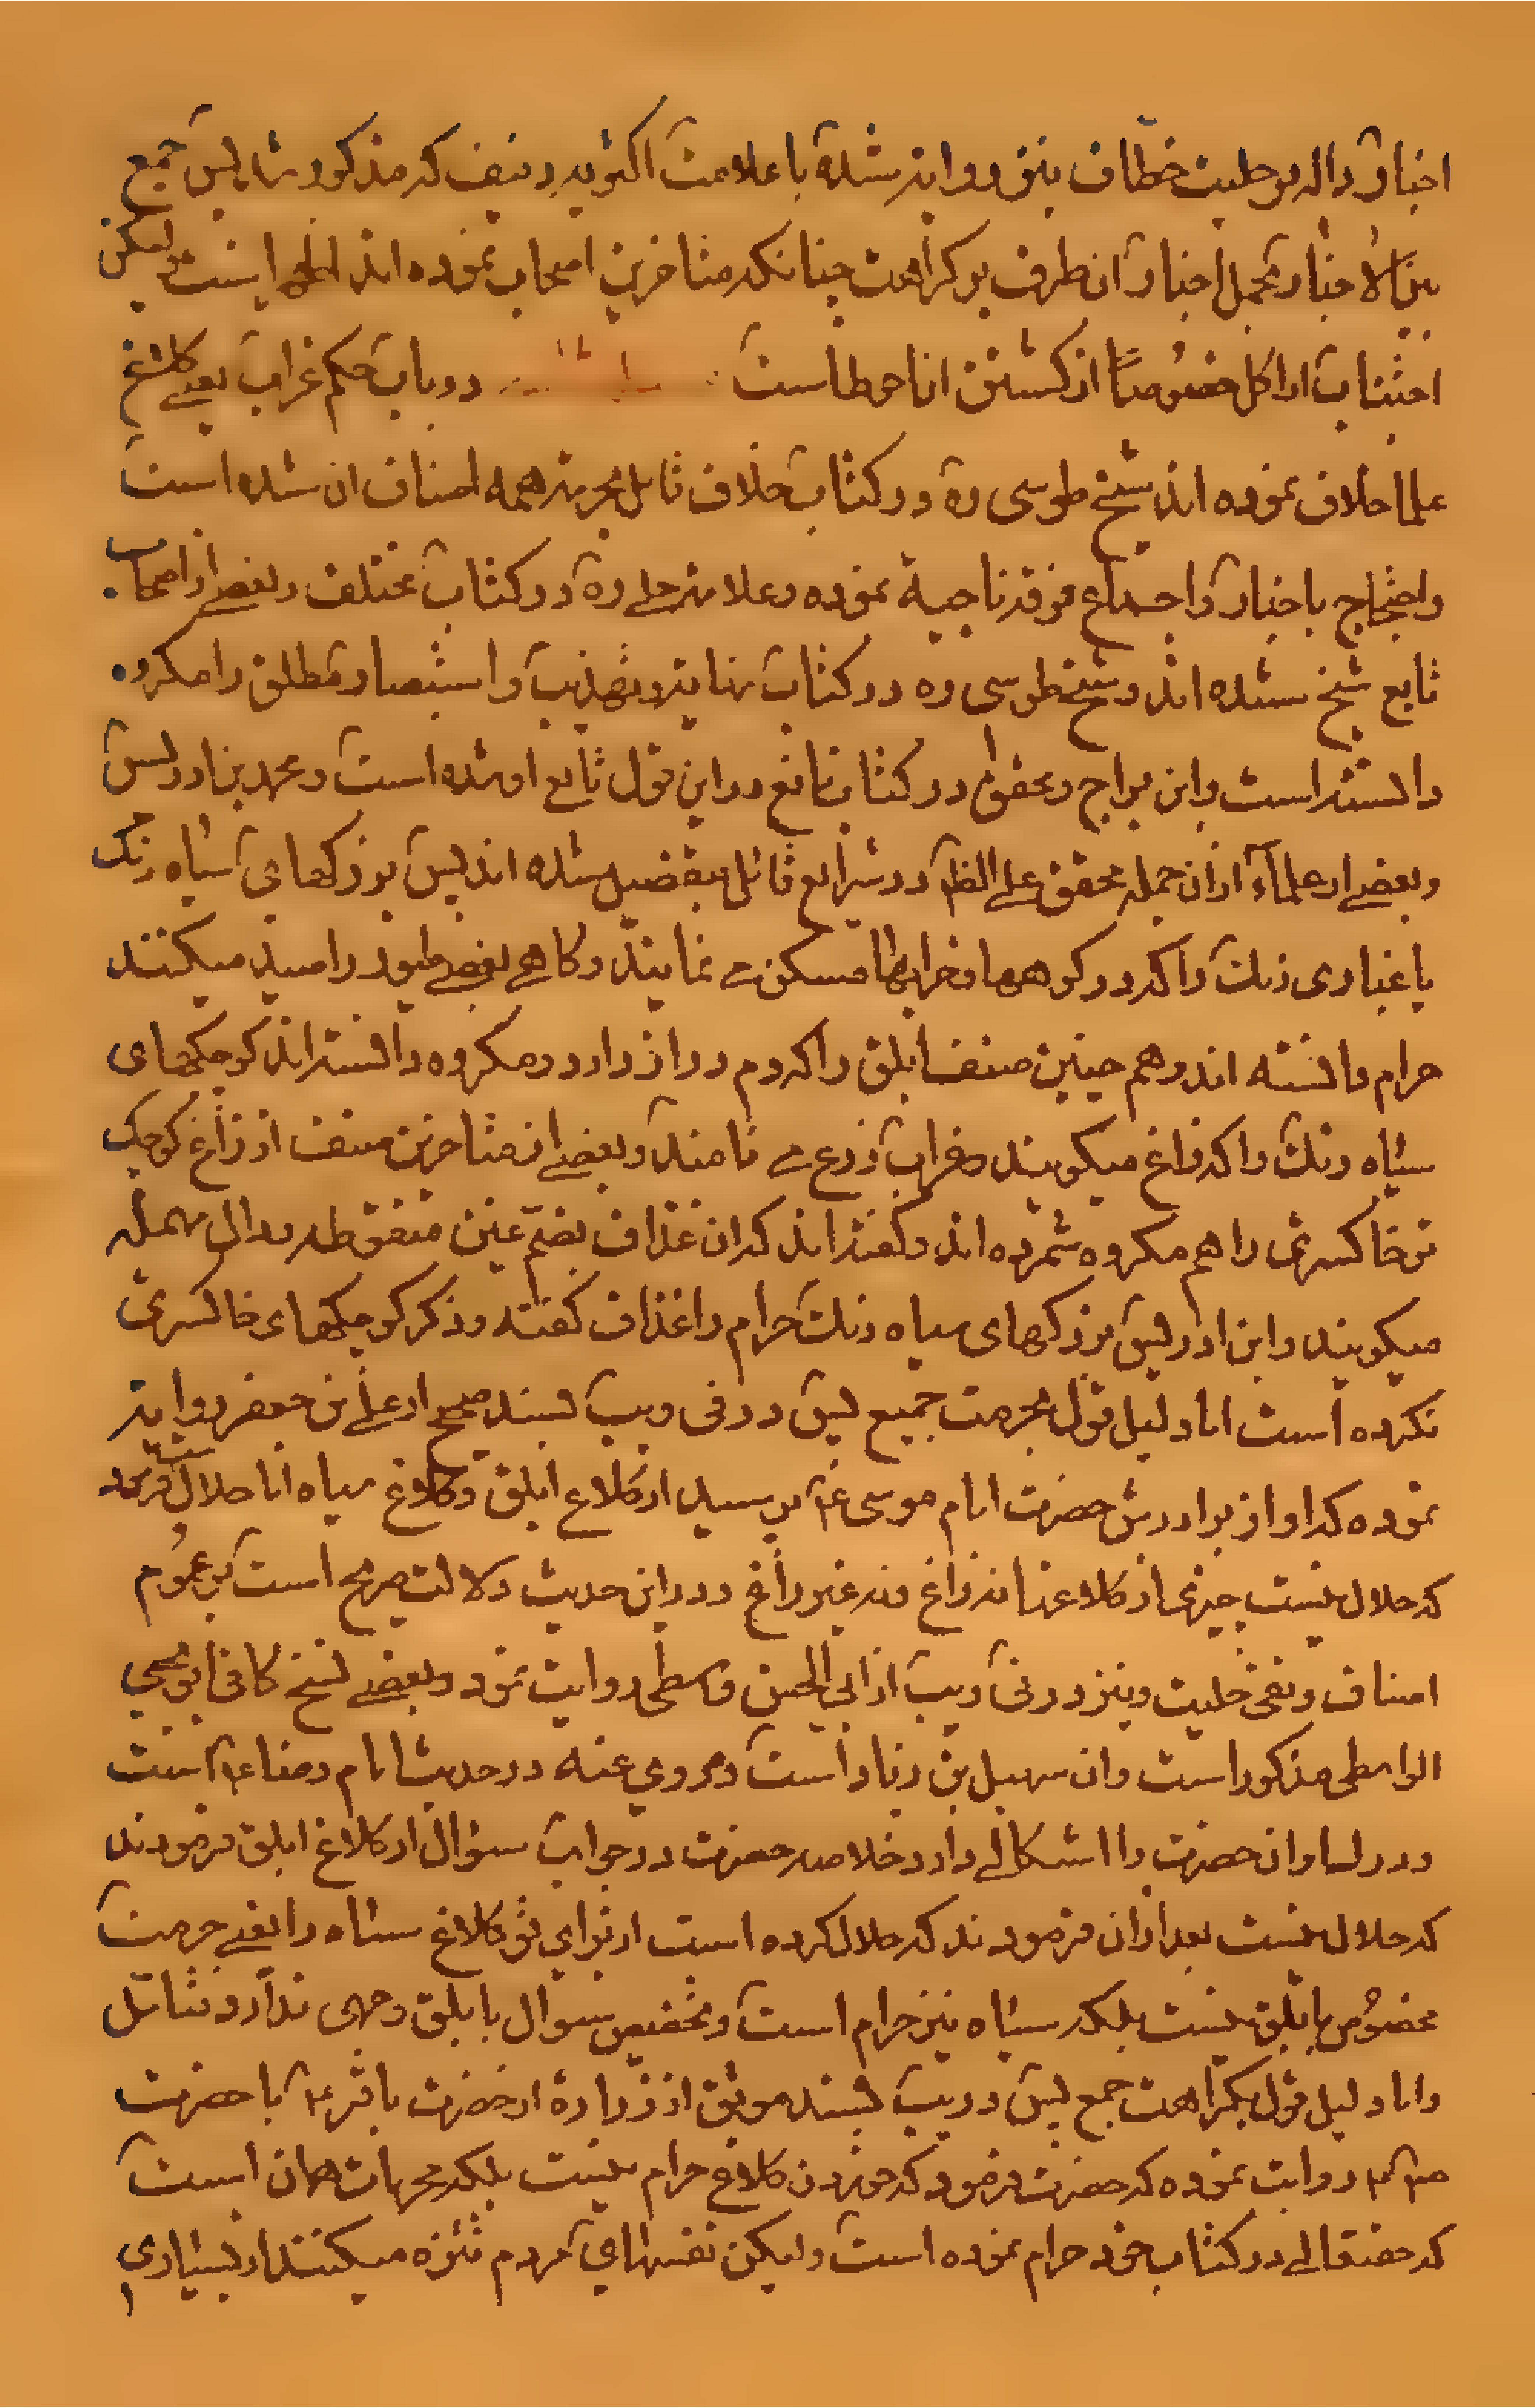 اخبار داله بر حلیت خطاف نیز روایت شده با علامت اکثریه دفیف که مذکور شد پس جمع
بین الاخبار بحمل اخبار ان طرف بر کراهت چنانکه متاخرین اصحاب نموده اند اظهر است ولیکن
اجتناب از اکل خصوصاً از کشتن ان احوط است در باب حکم غراب یعنی کلاغ
علما خلاف نموده اند شیخ طوسی ره در کتاب خلاف قائل بحرمة همه اصناف ان شده است
و احتجاج باخبار و اجماع فرقه ناجیة نموده و علامه حلی ره در کتاب مختلف و بعضی از اصحاب
تابع شیخ شده اند و شیخ طوسی ره در کتاب نهایة و تهذیب و استبصار مطلق را مکروه
دانسته است و ابن براج و محقق در کتاب نافع در این قول تابع او شده است و محمد بن ادریس
و بعضی از علماء از ان جمله محقق علی الظ در شرایع قائل بتفصیل شده اند پس بزرکهای سیاه رنک
یا غباری رنک را که در کوهها و خرابها مسکن می نمایند و کاهی بعضی طیور را صید میکنند
حرام دانسته اند و هم چنین صنف ابلق را که دم دراز دارد و مکروه دانسته اند کوچکهای
سیاه رنک را که زاغ میکویند و غراب زرع می نامند و بعضی از متاخرین صنف از زاغ کوچک
تر خاکستری را هم مکروه شمرده اند و کفته اند که ان غداف بضم غین منقوطه و دال مهمله
میکویند و ابن ادریس بزرکهای سیاه رنک حرام را غداف کفته و ذکر کوچکهای خاکستری
نکرده است اما دلیل قول بحرمت جمیع پس در فی و یب بسند صحیح از علی بن جعفر روایة
نموده که او از برادرش حضرت امام موسی ع پرسید از کلاغ ابلق و کلاغ سیاه ایا حلال است فرمود
که حلال نیست چیزی از کلاغها نه زاغ و نه غیر زاغ و در این حدیث دلالت صریح است بر عموم
اصناف و نفی حلیت و نیز در فی و یب از ابی الحسن واسطی روایت نمود و بعضی نسخ کافی ابو یحیی
الواسطی مذکور است و ان سهیل بن زیاد است و مروی عنه در حدیث امام رضا ع است
و در حضرت را اشکالی دارد خلاصه حضرت در جواب سؤال از کلاغ ابلق فرمودند
که حلال نیست بعد از ان فرمودند که حلال کرده است از برای تو کلاغ سیاه را یعنی حرمت
مخصوص بابلق نیست بلکه سیاه نیز حرام است و تخصیص سوال بابلق وجهی ندارد فتامل
و اما دلیل قول بکراهت جمع پس در یب بسند موثق از زرارة از حضرت باقر ع یا حضرت
ص ع روایت نموده که حضرت فرمود که خوردن کلاغ حرام نیست بلکه محرمات همان است
که حقتعالی در کتاب خود حرام نموده است ولیکن نفسهای مردم تنزه میکنند از بسیاری